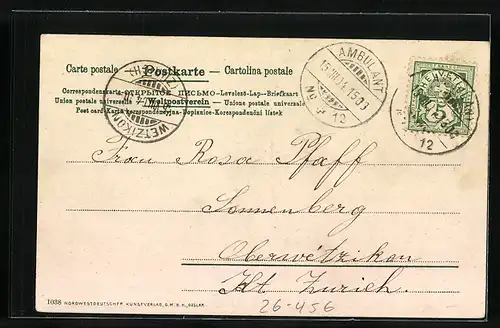 Carte postale — Postkarte — Cartolina postale
Correspondenzkarte — ОТКРЫТОЕ ПИСЬМО — Levelezö-Lap — Briefkaart
Union postale universelle — Weltpostverein — Unione postale universale
Post card — Karta korespondencyjna — Dopisnice — Korespondenční lístek
WETZIKON
AMBULANT
12
12
Frau Rosa Pfaff
Sonnenberg
Oberwetzikon
Kt. Zürich.
26-456
1038 NORDWESTDEUTSCHER KUNSTVERLAG, G.M.B.H., GOSLAR.